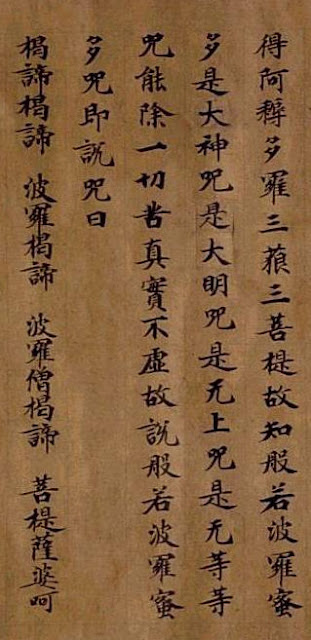 得阿耨多羅三藐三菩提故知般若波羅蜜
多是大神咒是大明咒是无上咒是无等等
咒能除一切苦真實不虛故說般若波羅蜜
多咒即說咒曰
揭諦揭諦 波羅揭諦 波羅僧揭諦 菩提薩婆呵